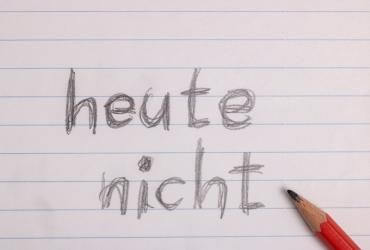 heute
nicht